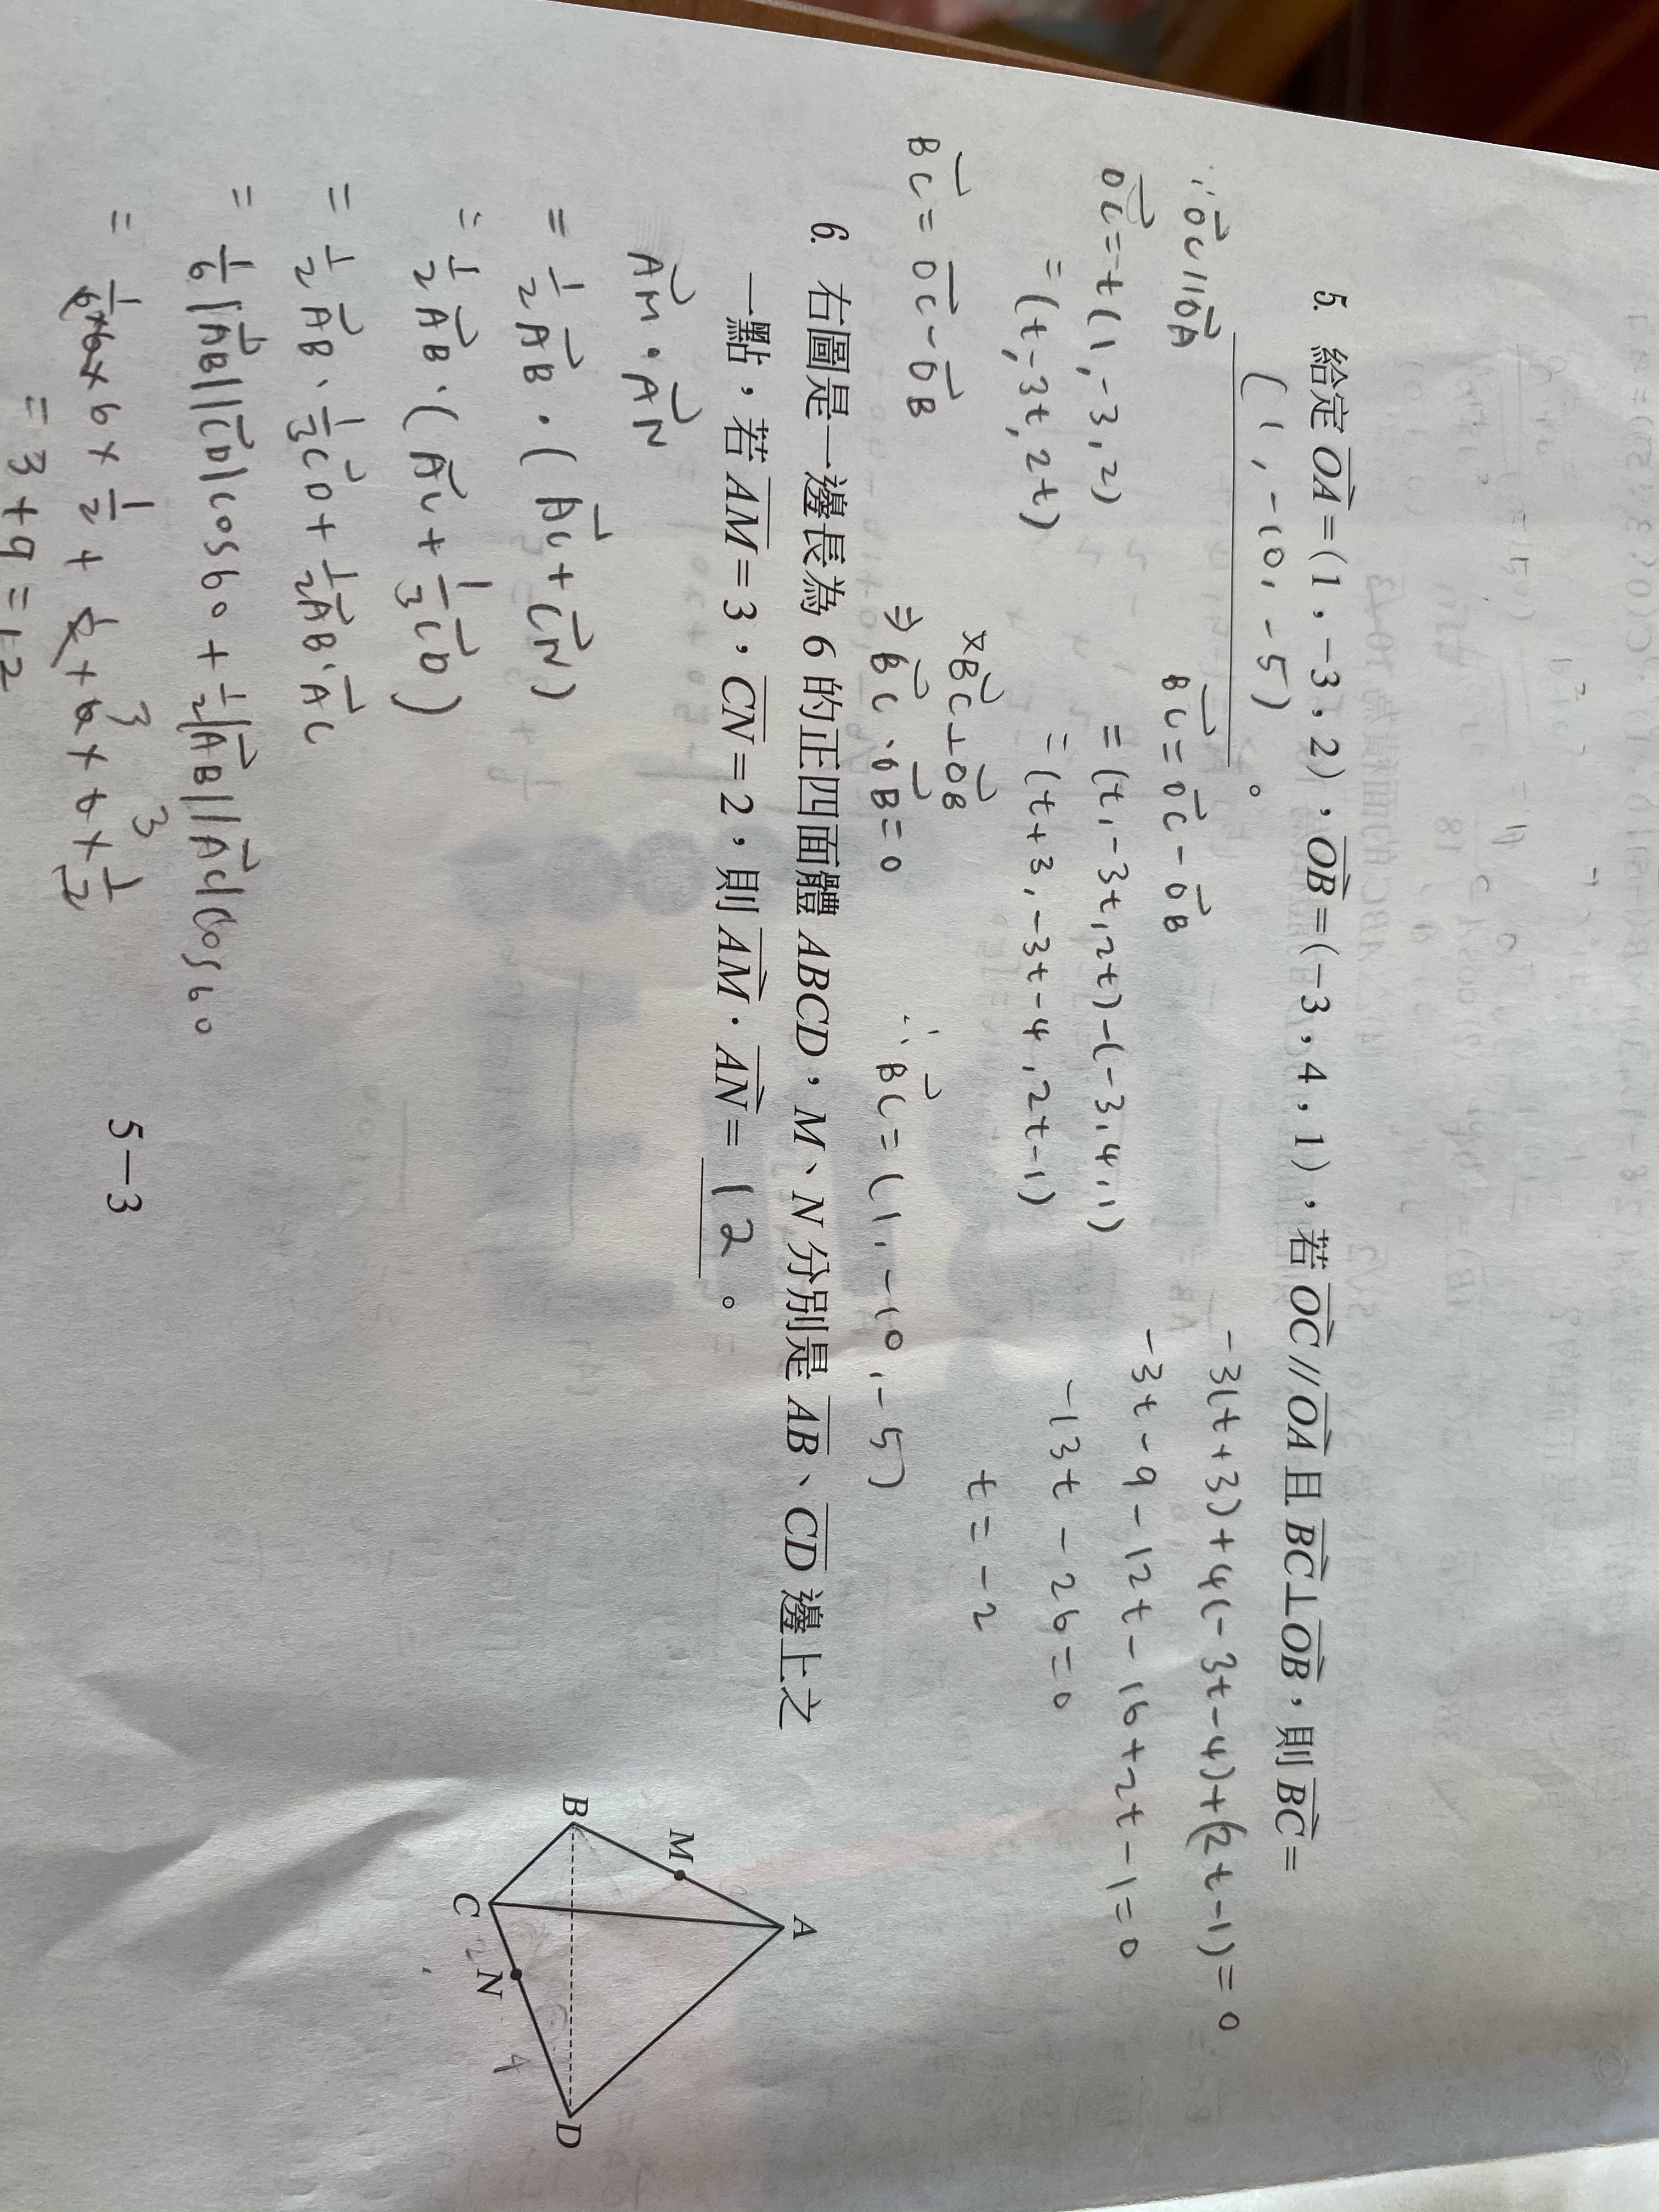 5. 給定 OA⃗ = (1, -3, 2)，OB⃗ = (-3, 4, 1)，若 OC⃗ // OA⃗ 且 BC⃗ ⊥ OB⃗，則 BC⃗ =
(1, -10, -5) 。
∵ OC⃗ // OA⃗
OC⃗ = t(1, -3, 2)
= (t, -3t, 2t)
BC⃗ = OC⃗ - OB⃗
BC⃗ = OC⃗ - OB⃗
= (t, -3t, 2t) - (-3, 4, 1)
= (t+3, -3t-4, 2t-1)
又BC⃗ ⊥ OB⃗
⇒ BC⃗ · OB⃗ = 0
-3(t+3)+4(-3t-4)+(2t-1)=0
-3t-9-12t-16+2t-1=0
-13t-26=0
t=-2
∴ BC⃗ = (1, -10, -5)
6. 右圖是一邊長為 6 的正四面體 ABCD，M、N 分別是 A͞B͞、C͞D͞ 邊上之
一點，若 A͞M͞ = 3，C͞N͞ = 2，則 AM⃗ · AN⃗ = 12 。
AM⃗ · AN⃗
= 1/2 AB⃗ · (AC⃗ + CN⃗)
= 1/2 AB⃗ · (AC⃗ + 1/3 CD⃗)
= 1/2 AB⃗ · 1/3 CD⃗ + 1/2 AB⃗ · AC⃗
= 1/6 |AB⃗||CD⃗| cos60 + 1/2 |AB⃗||AC⃗| cos60
= 1/6 × 6 × 6 × 1/2 + 1/2 × 6 × 6 × 1/2
= 3 + 9 = 12
A
M
B
C
N
D
4
5－3